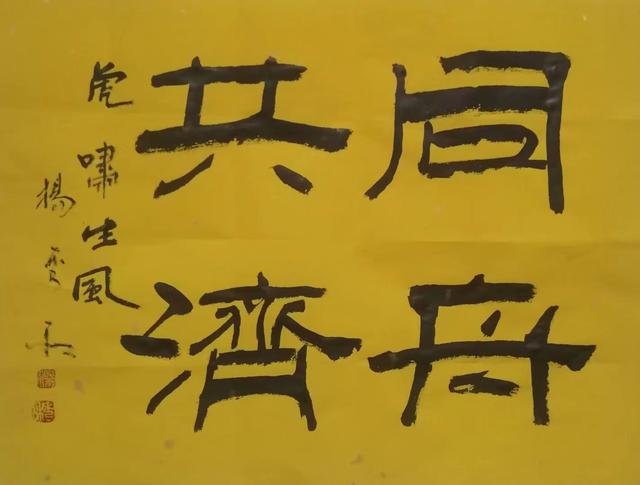 同舟
共濟
虎嘯生風
楊